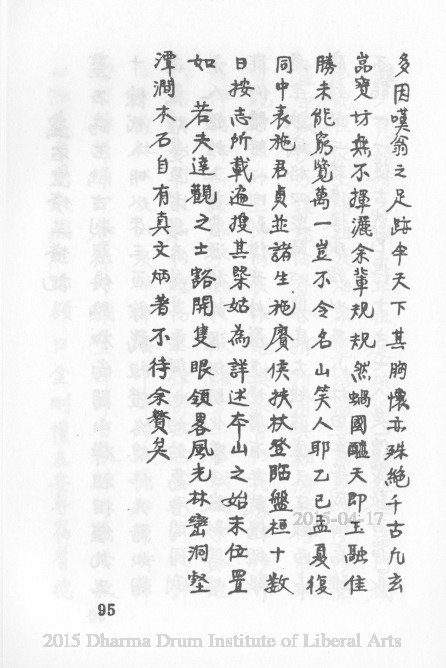 多因嘆翁之足跡半天下其胸懷亦殊絕千古凡玄
嵓窔坊無不揮灑余輩規規然蝸國醯天即玉融佳
勝未能窮覽萬一豈不令名山笑人耶乙巳孟夏復
同中表施君貞並諸生施賡侯扶杖登臨盤桓十數
日按志所載遍搜其槩姑為詳述本山之始末位置
如 若夫達觀之士豁開隻眼領畧風光林巒洞壑
潭澗木石自有真文炳著不待余贅矣
95
2015-04-17
2015 Dharma Drum Institute of Liberal Arts